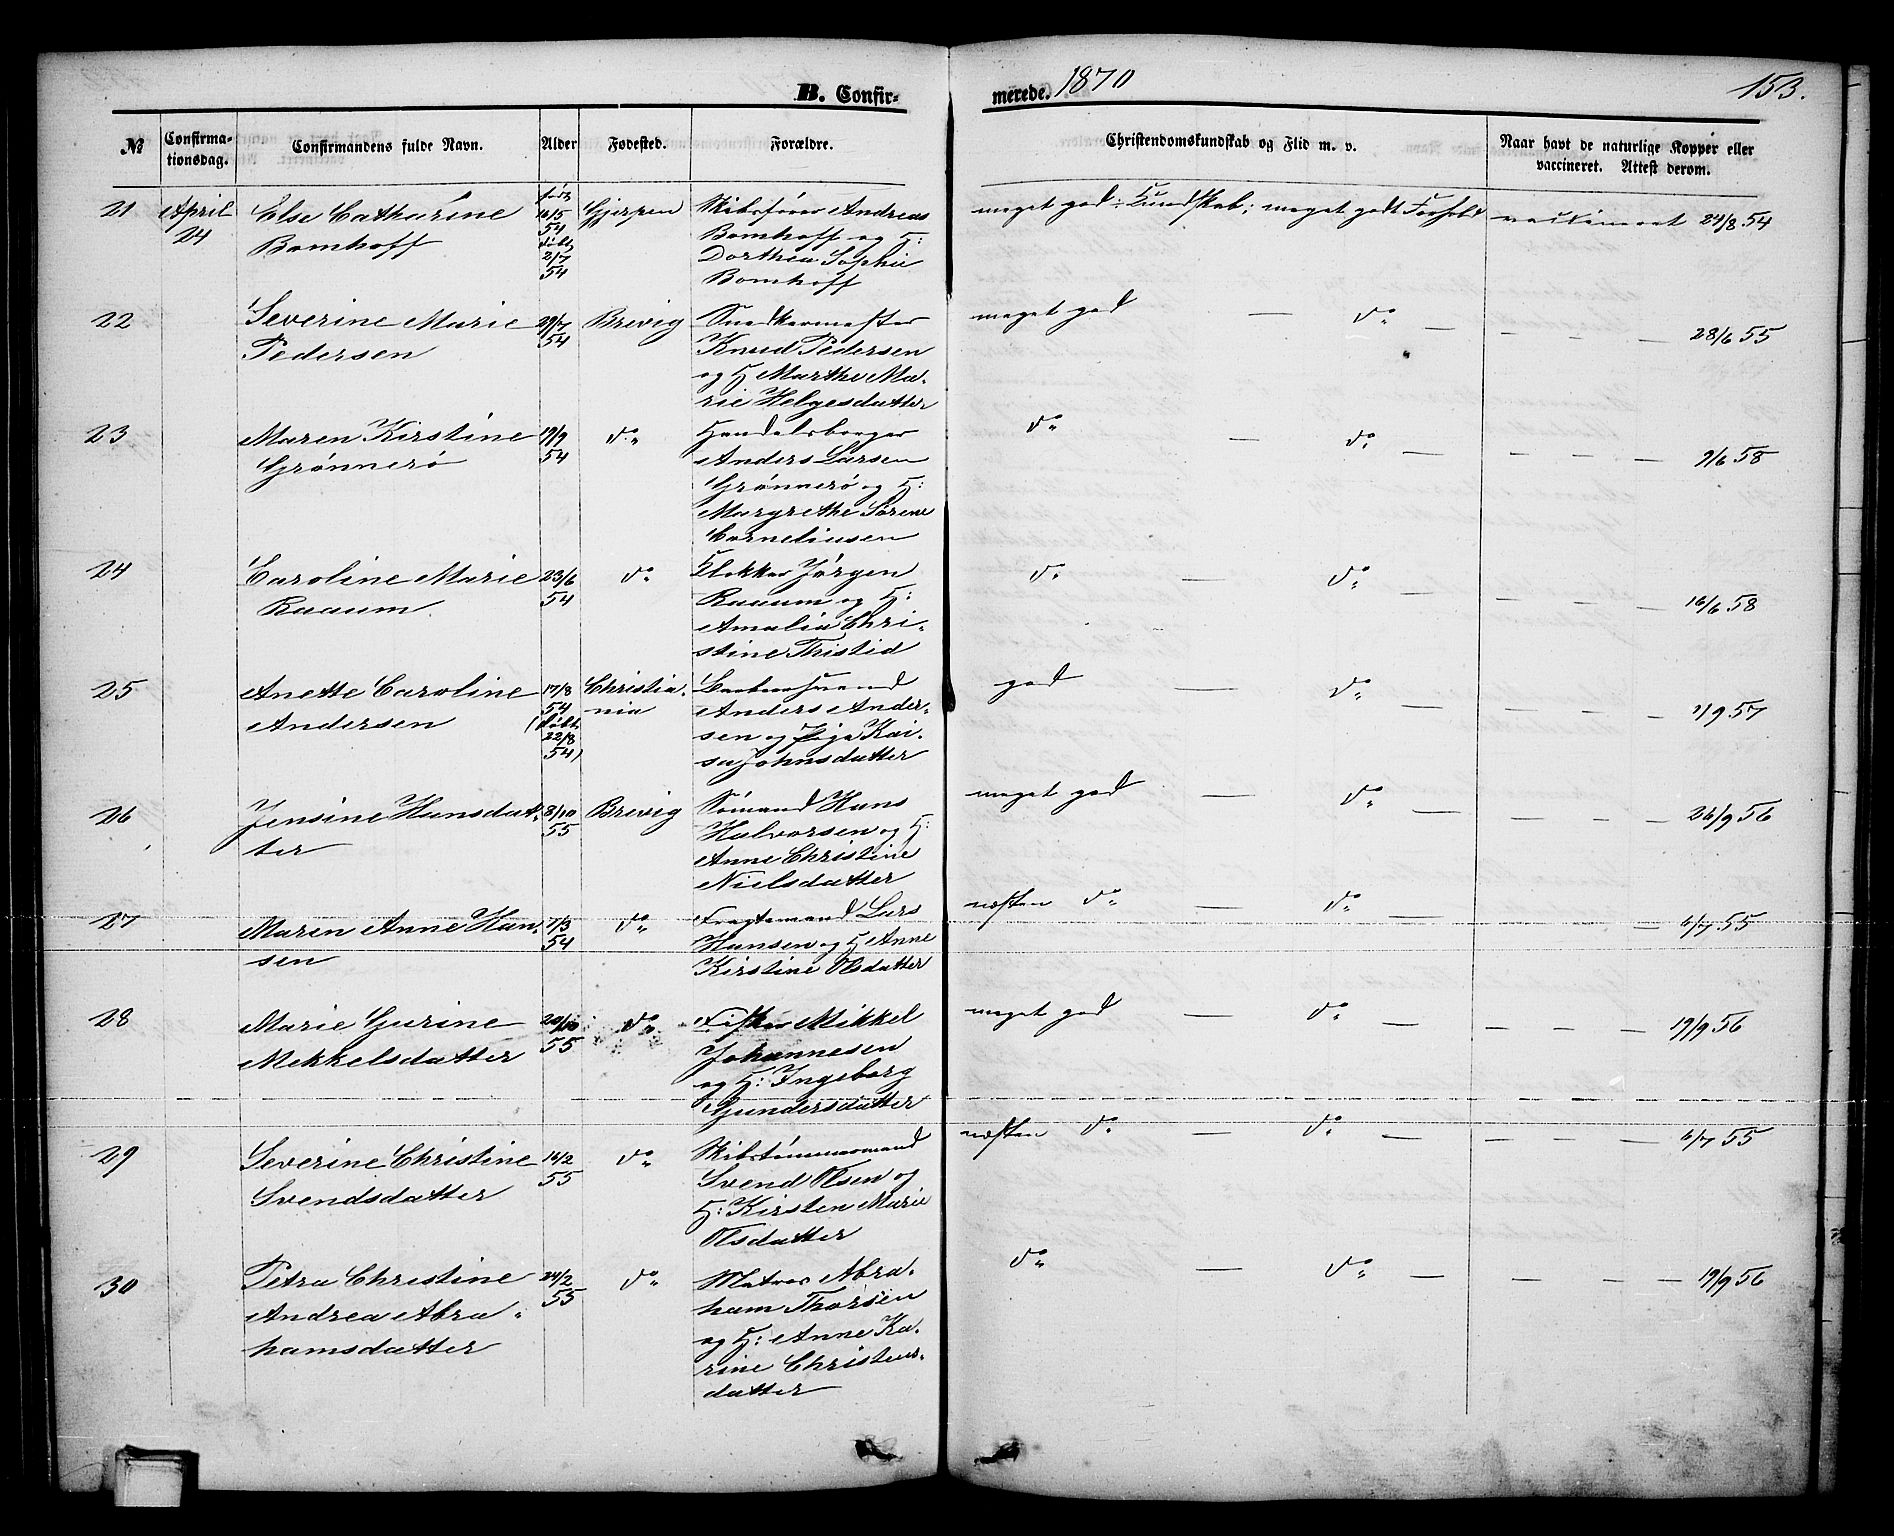 B. Confir-
merede. 1870
153.
№
Confirma-
tionsdag.
Confirmandens fulde Navn.
Alder
Fødested.
Forældre.
Christendomskundskab og Flid m. v.
Naar havt de naturlige Kopper eller
vaccineret. Attest derom.
21 April
24
Else Catharine
Bomhoff
født
16/5
54
døbt
2/7
54
Gjerpen
Skibsfører Andreas
Bomhoff og H:
Dorthea Sophie
Bomhoff
meget god Kundskab; meget godt Forhold vaccineret 24/8 54
22 Severine Marie
Pedersen
29/7
54
Brevig
Snedkermester
Knud Pedersen
og H Marthe Ma-
rie Helgesdatter
meget god — do — — — — 28/6 55
23 Maren Kirstine
Grønnerø
19/9
54
do
Handelsborger
Anders Larsen
Grønnerø og H:
Margrethe Sørene
Corneliusen
do — do — — — — 9/6 58
24 Caroline Marie
Ruaum
23/6
54
do
Klokker Jørgen
Ruaum og H:
Amalia Chri-
stine Thistid
do — do — — — — 16/6 58
25 Anette Caroline
Andersen
17/8
54
(døbt
22/8
54)
Christia-
nia
Anders Ander-
sen og Kai-
sa Johnsdatter
god — do — — — — 2/9 57
26 Jensine Hansdat-
ter
8/10
55
Brevig
Sømand Hans
Halvorsen og H:
Anne Christine
Nielsdatter
meget god — do — — — — 26/9 56
27 Maren Anne Han-
sen
7/3
54
do
Fragtemand Lars
Hansen og H Anne
Kirstine Olsdatter
næsten do — do — — — — 6/7 55
28 Marie Gurine
Mekkelsdatter
20/10
55
do
Fisker Mikkel
Johannesen
og H: Ingeborg
Gundersdatter
meget god — do — — — — 19/9 56
29 Severine Christine
Svendsdatter
14/2
55
do
Skibstømmermand
Svend Olsen og
H: Kirsten Marie
Olsdatter
næsten do — do — — — — 6/7 55
30 Petra Christine
Andrea Abra-
hamsdatter
24/2
55
do
Matros Abra-
ham Thorsen
og H: Anne Ka-
rine Christens-
datter
do — do — — — — 19/9 56